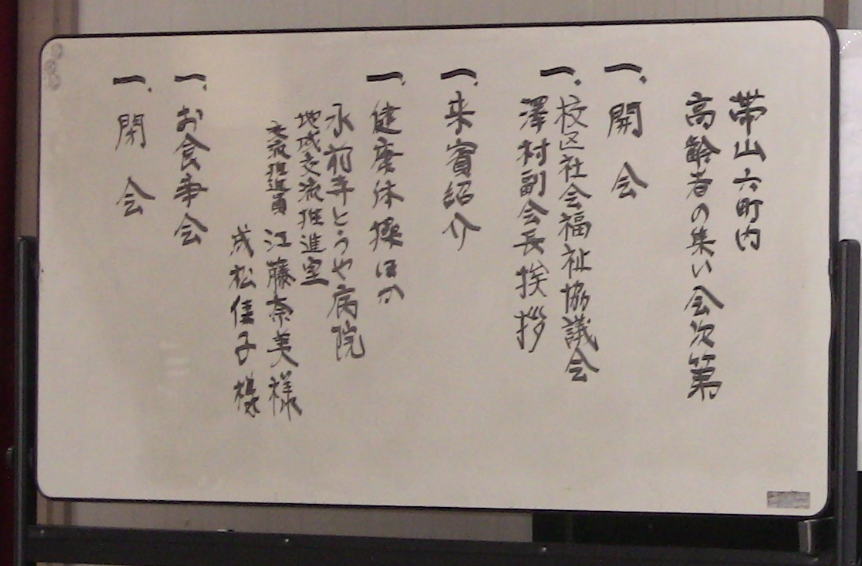 帯山六町内
高齢者の集い会次第
一、開会
一、校区社会福祉協議会
澤村副会長挨拶
一、来賓紹介
一、健康体操ほか
水前寺とうや病院
地域交流推進室
交流推進員 江藤奈美様
成松佳子様
一、お食事会
一、閉会